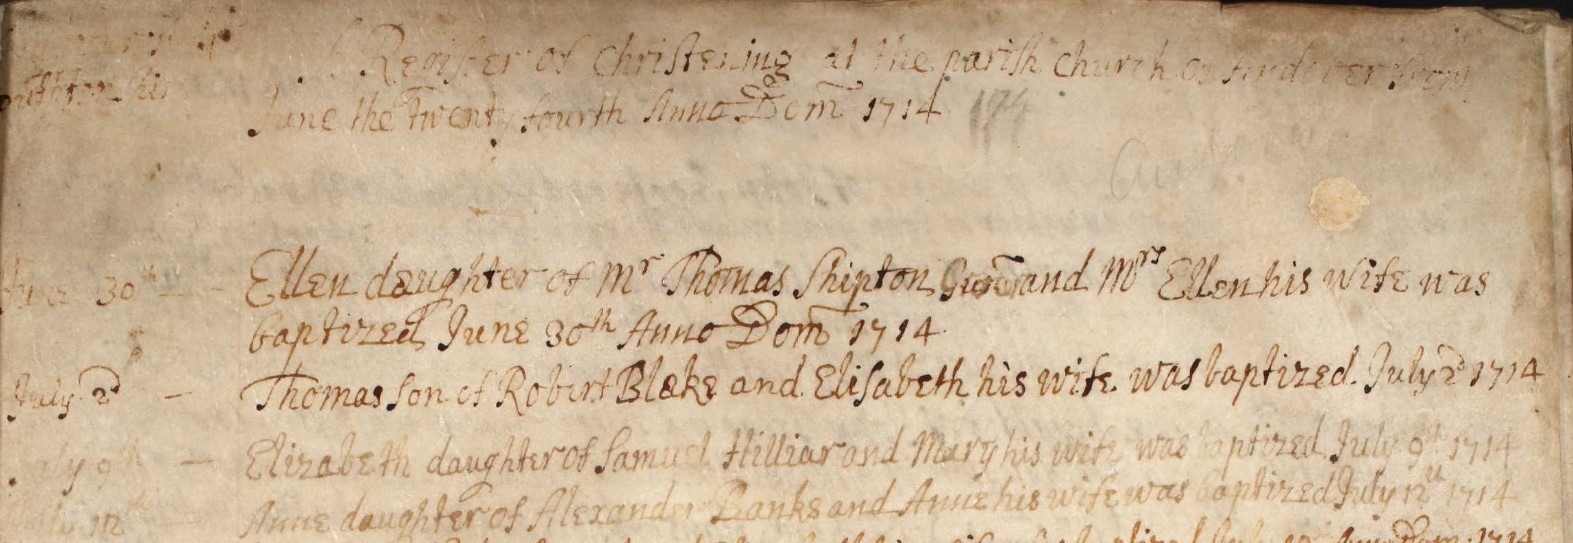 Register of Christening at the parish Church of Andover from
June the Twenty fourth Anno Dom 1714 174
June 30th — - Ellen daughter of Mr Thomas Shipton and Mrs Ellen his wife was
baptized June 30th Anno Dom 1714
July 2d — Thomas son of Robert Blake and Elisabeth his wife was baptized July 2d 1714
July 9th — Elizabeth daughter of Samuel Hilliar and Mary his wife was baptized July 9th 1714
July 12th Anne daughter of Alexander Banks and Anne his wife was baptized July 12th 1714